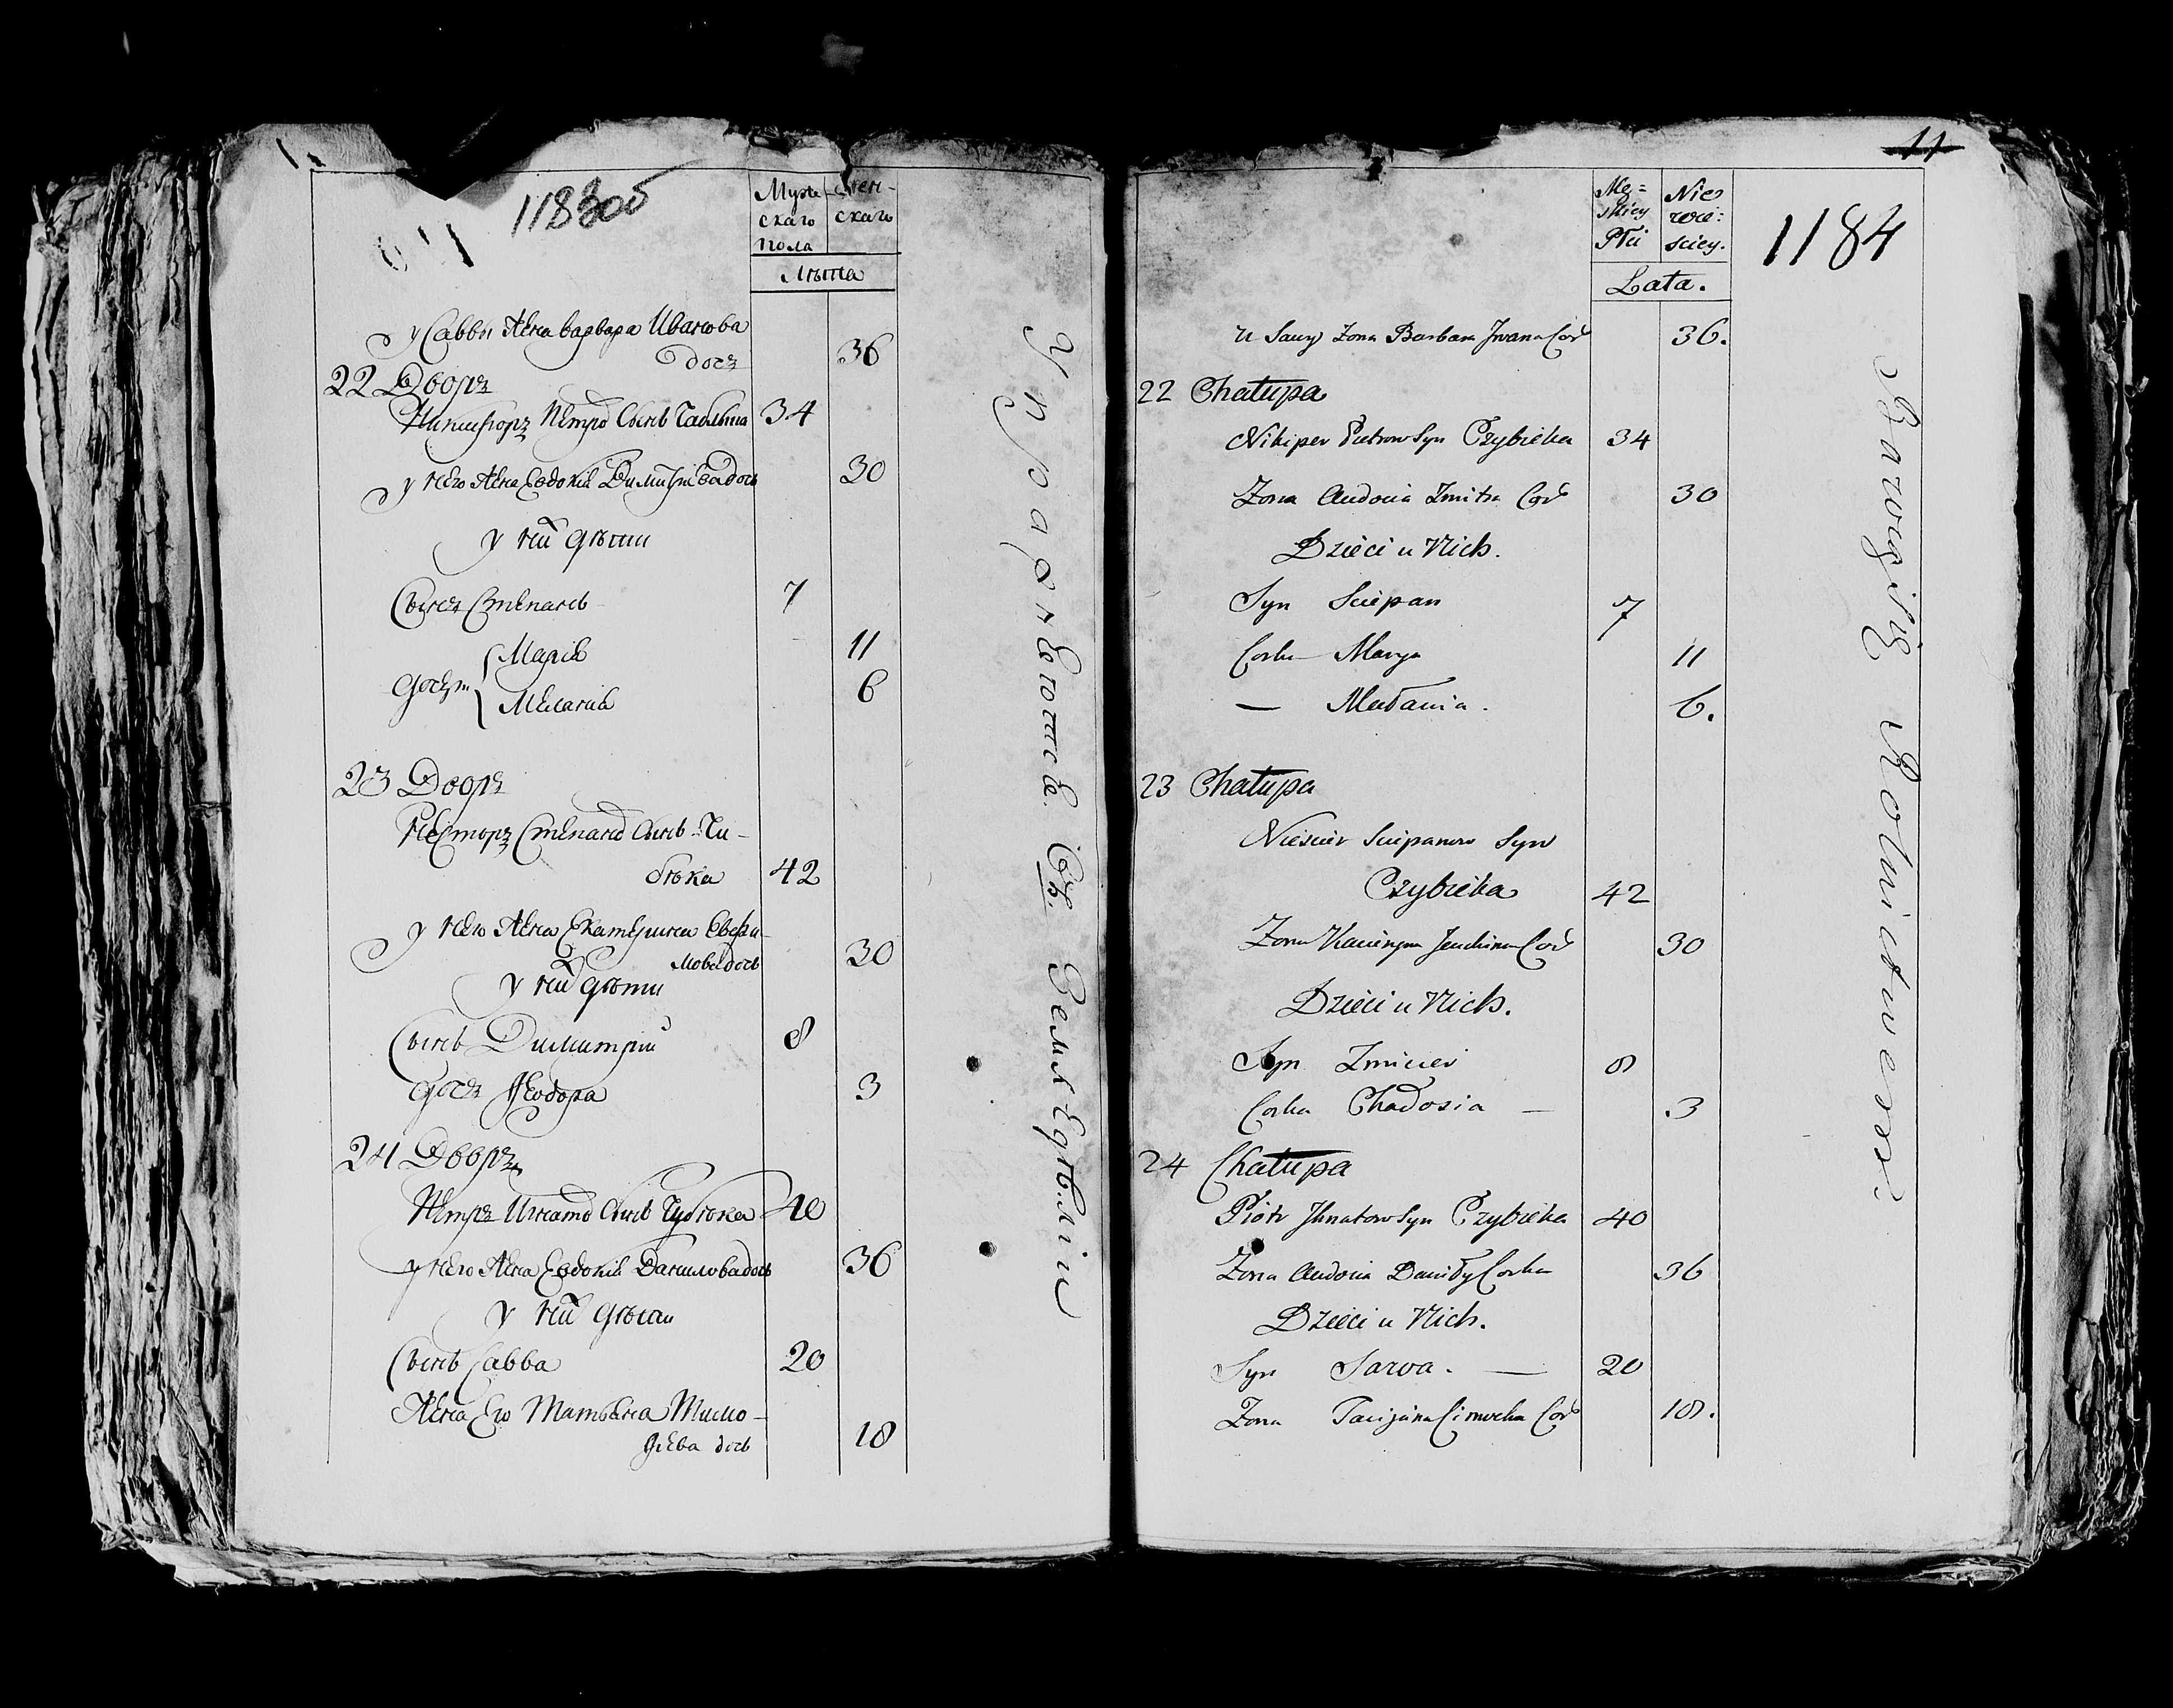 118305
Муже-
скаго
пола
Жен-
скаго
Лѣта
у Саввы жена варвара Иванова
дочь 36
22 Дворъ
Никифоръ Петровъ Сынъ 34
у него жена Евдокія Димитріева дочь 30
у них дѣти
Сынъ Степанъ 7
дочери Марія 11
Меланія 6
23 Дворъ
Несторъ Степановъ сынъ Чи-
бѣка 42
у него жена Екатерина Евфи-
мова дочь 30
у них дѣти
Сынъ Димитрій 8
дочь Феодора 3
24 Дворъ
Петръ Игнатовъ сынъ Чубѣка 40
у него жена Евдокія Данилова дочь 36
у них дѣти
Сынъ Савва 20
жена Его Татьяна Тимо-
феева дочь 18
Упражненіе
Земледѣліи
11
1184
Mę=
skiey
Płci
Nie
wie:
sciey.
Lata.
u Sawy Zona Barbara Jwana Cor 36.
22 Chałupa
Nikiper Pietrow Syn Czybieka 34
Zona Audocia Zmitra Cor 30
Dzieci u Nich.
Syn Sciepan 7
Corka Marya 11
— Mełania. 6.
23 Chałupa
Niescier Sciepanow Syn
Czybieka 42
Zona Kacieryna Jeuchima Cor 30
Dzieci u Nich.
Syn Zmicier 8
Corka Chadosia — 3
24 Chałupa
Piotr Jhnatow Syn Czybieka 40
Zona Audocia Daniły Corka 36
Dzieci u Nich.
Syn Sawa. — 20
Zona Tacijana Cimocha Cor 18.
Bawią się Rolnictwem